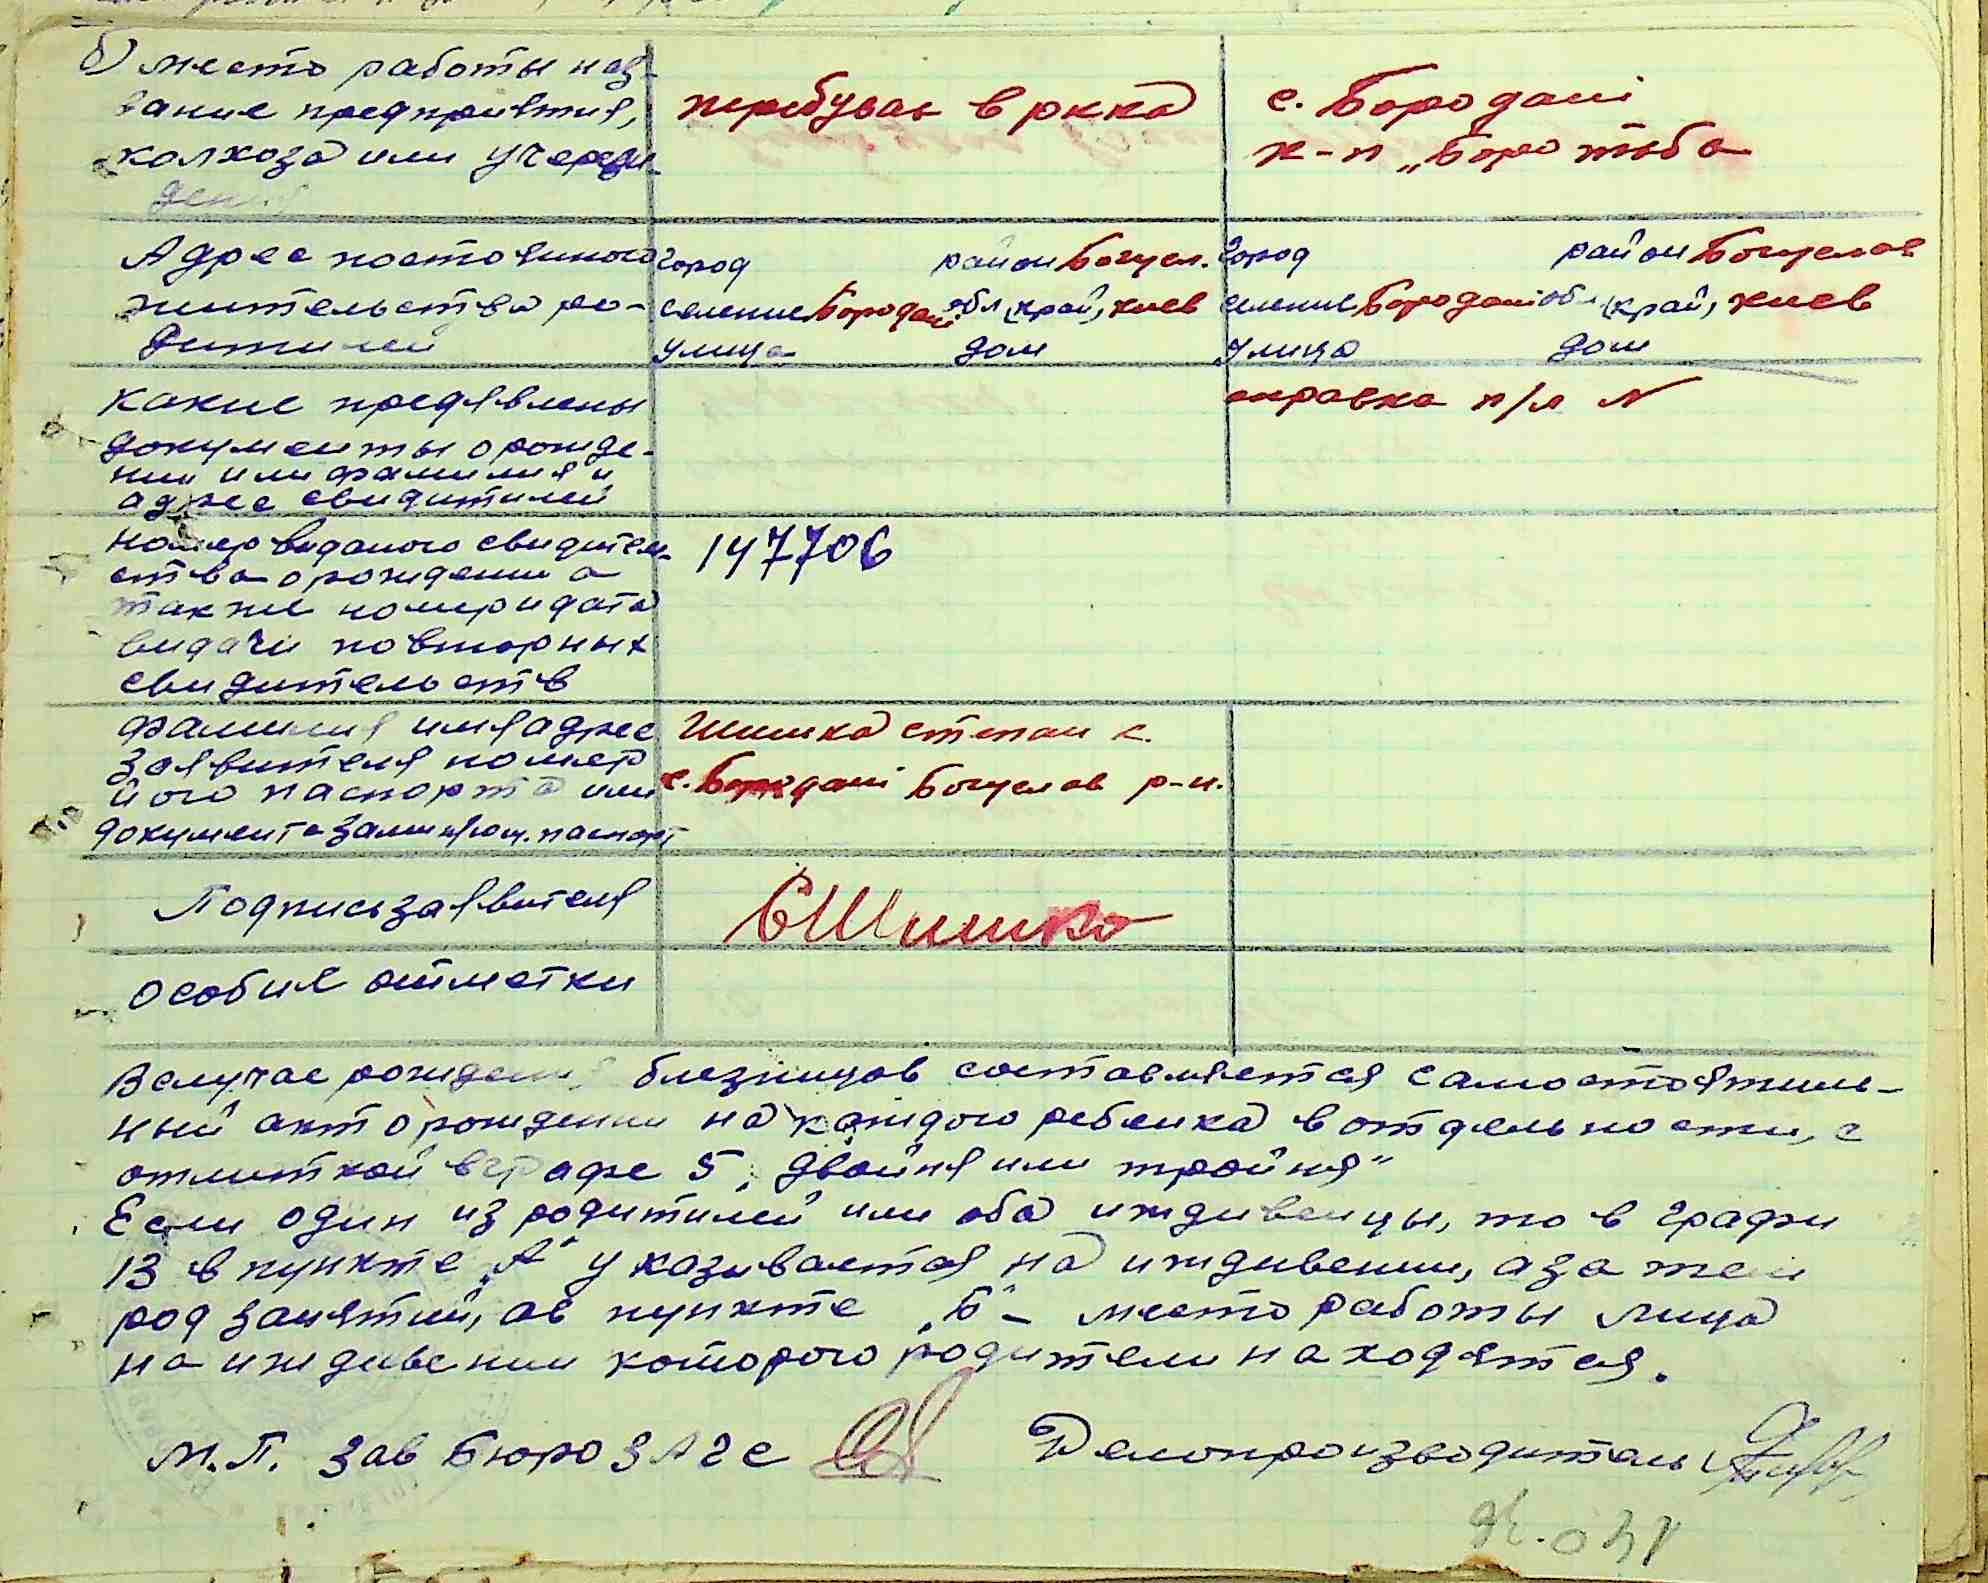 б) место работы наз-
вание предприятия,
колхоза или учереж-
дения
перебуває в ркка
с. Бородані
к-п „Боротьба
Адрес постоянного
жительства ро-
дителей
город район Богусл.
селение Бородані обл (край) киев
улица дом
город район Богуслав
селение Бородані обл (край) киев
улица дом
какие предявлены
документы о рожде-
нии или фамилия и
адрес свидителей
справка п/л N
номер виданого свидитель-
ства о рождении а
также номер и дата
видачи повторных
свидительств
147706
фамилия имя адрес
заявителя номер
його паспорта или
документа заменяющ. паспорт
Шишка степан к.
с. Бородані Богуслав р-н.
Подпись заявителя
СШишка
особия отметки
В случае рождения близницов составляется самостоятиль-
ный акт о рождении на каждого ребенка в отдельности, с
отметкой в графе 5, двойня или тройня"
Если один из родитилей или оба иждивенцы, то в графи
13 в пункте „А" указивается на иждивении, а затем
род занятий, а в пункте „Б" – место работы лица
на иждивении которого родители находятся.
М.П. Зав Бюро ЗАГС Делопроизводитель